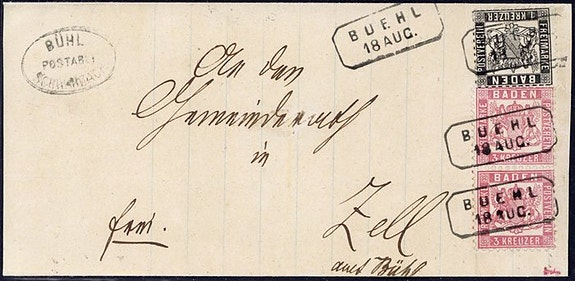 BÜHL
POSTABL.
BUEHL
18 AUG.
1 KREUZER
POSTVEREIN
FREIMARKE
BADEN
An den
Gemeinderath
in
Zell
amt Bühl
frei.
BADEN
FREIMARKE
POSTVEREIN
3 KREUZER
BUEHL
18 AUG.
BADEN
POSTVEREIN
3 KREUZER
BUEHL
18 AUG.